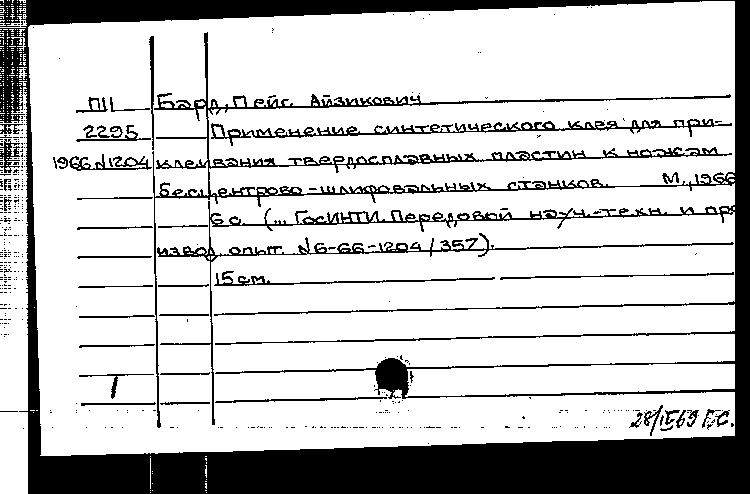 П11 Бард, Пейс. Айзикович
2295 Применение синтетического клея для при-
1966 №1204 клеивания твердосплавных пластин к ножам
бесцентрово-шлифовальных станков. М., 1966
6 с. (... ГосИНТИ. Передовой науч.-техн. и про
извод. опыт. №6-66-1204/357).
15 см.
1
28/IV69 Г.С.